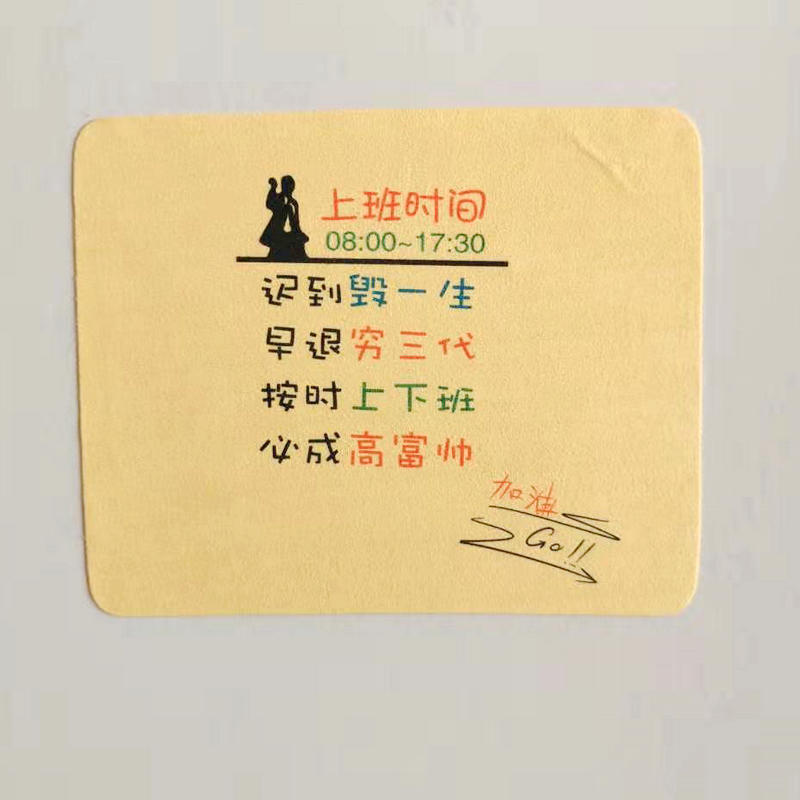 上班时间
08:00~17:30
迟到毁一生
早退穷三代
按时上下班
必成高富帅
加油
Go!!